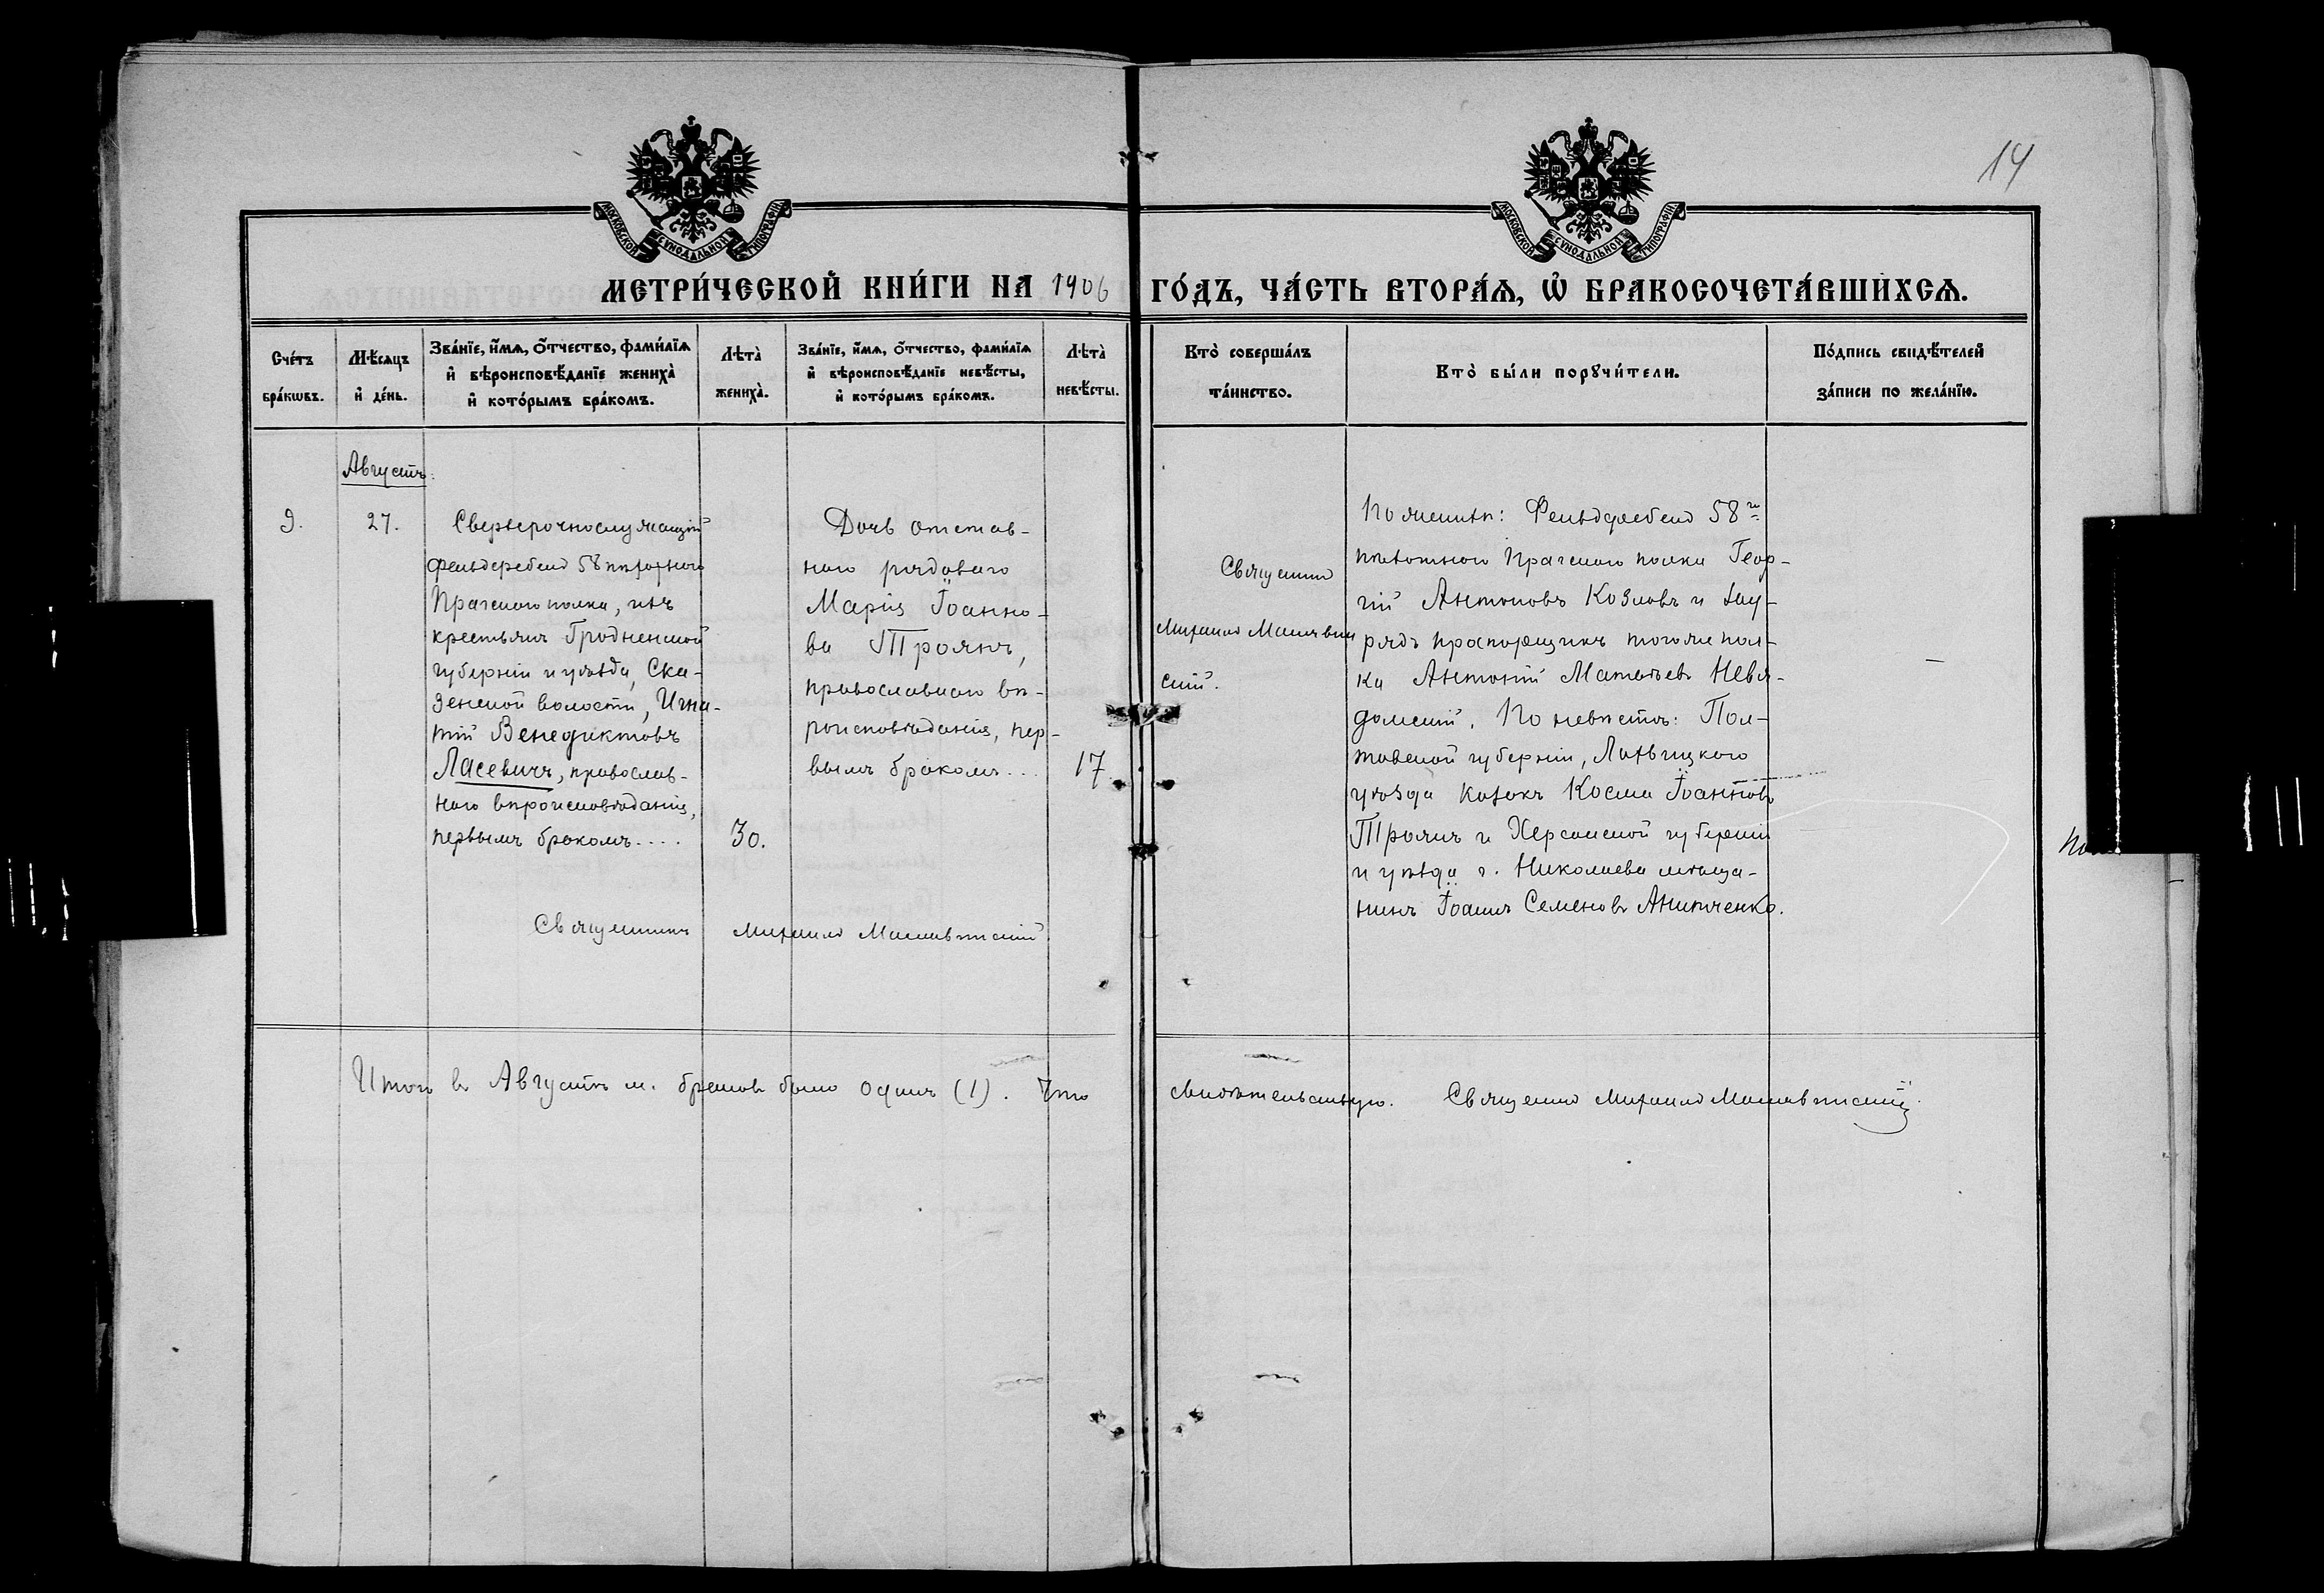 14
МОСКОВСКОЙ СѴНОДАЛЬНОЙ ТИПОГРАФІИ
МОСКОВСКОЙ СѴНОДАЛЬНОЙ ТИПОГРАФІИ
МЕТРИ́ЧЕСКОЙ КНИ́ГИ НА 1906 ГО́ДЪ, ЧА́СТЬ ВТОРА́Ѧ, Ѽ БРАКОСОЧЕТА́ВШИХСѦ.
Сче́тъ
бра́кѡвъ.
Мѣ́сѧцъ
и҆ де́нь.
Зва́нїе, и҆́мѧ, ѻ҆́тчество, фами́лїѧ
и҆ вѣроисповѣ́данїе жениха̀
и҆ кото́рымъ бра́комъ.
Лѣта̀
жениха̀.
Зва́нїе, и҆́мѧ, ѻ҆́тчество, фами́лїѧ
и҆ вѣроисповѣ́данїе невѣ́сты,
и҆ кото́рымъ бра́комъ.
Лѣта̀
невѣ́сты.
Кто̀ соверша́лъ
та́инство.
Кто̀ бы́ли порꙋчи́тели.
По́дпись свидѣ́телей
за́писи по жела́нїю.
Августъ.
9.
27.
Сверхсрочнослужащій
фельдфебель 58 пѣхотнаго
Прагскаго полка, изъ
крестьянъ Гродненской
губерніи и уѣзда, Ска-
зенской волости, Игна-
тій Венедиктовъ
Ласевичъ, православ-
наго вѣроисповѣданія,
первымъ бракомъ....
30.
Дочь отстав-
наго рядоваго
Марія Іоанно-
ва Троянъ,
православнаго вѣ-
роисповѣданія, пер-
вымъ бракомъ...
17
Священникъ
Михаилъ
скій.
По женихѣ: Фельдфебель 58го
пѣхотнаго Прагскаго полка Геор-
гій Антоновъ Козловъ и Зау-
рядъ прапорщикъ того же пол-
ка Антоній Матвѣевъ Невя-
домскій. По невѣстѣ: Пол-
тавской губерніи, Лохвицкаго
уѣзда козакъ Косма Іоанновъ
Троянъ и Херсонской губерніи
и уѣзда г. Николаева мѣща-
нинъ Іоаннъ Семеновъ Аниченко.
—
Священникъ Михаилъ
Итого въ Августѣ м. браковъ было одинъ (1). Что
свидѣтельствую. Священникъ Михаилъ